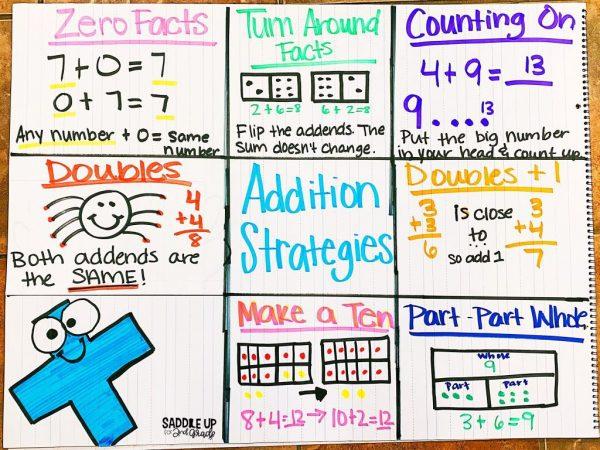 Zero Facts
7+0=7
0+7=7
Any number + 0= same
number
Turn Around
Facts
2+6=8
6+2=8
Flip the addends. The
Sum doesn't change.
Counting On
4+9= 13
9.... 13
Put the big number
in your head & count up
Doubles
4
+4
8
Both addends are
the SAME!
Addition
Strategies
Doubles +1
3
+3
6
is close
to...
so add 1
3
+4
7
SADDLE UP
for 2nd Grade
Make a Ten
8+4=12 → 10+2=12
Part-Part Whole
Whole
9
Part
Part
3+6=9